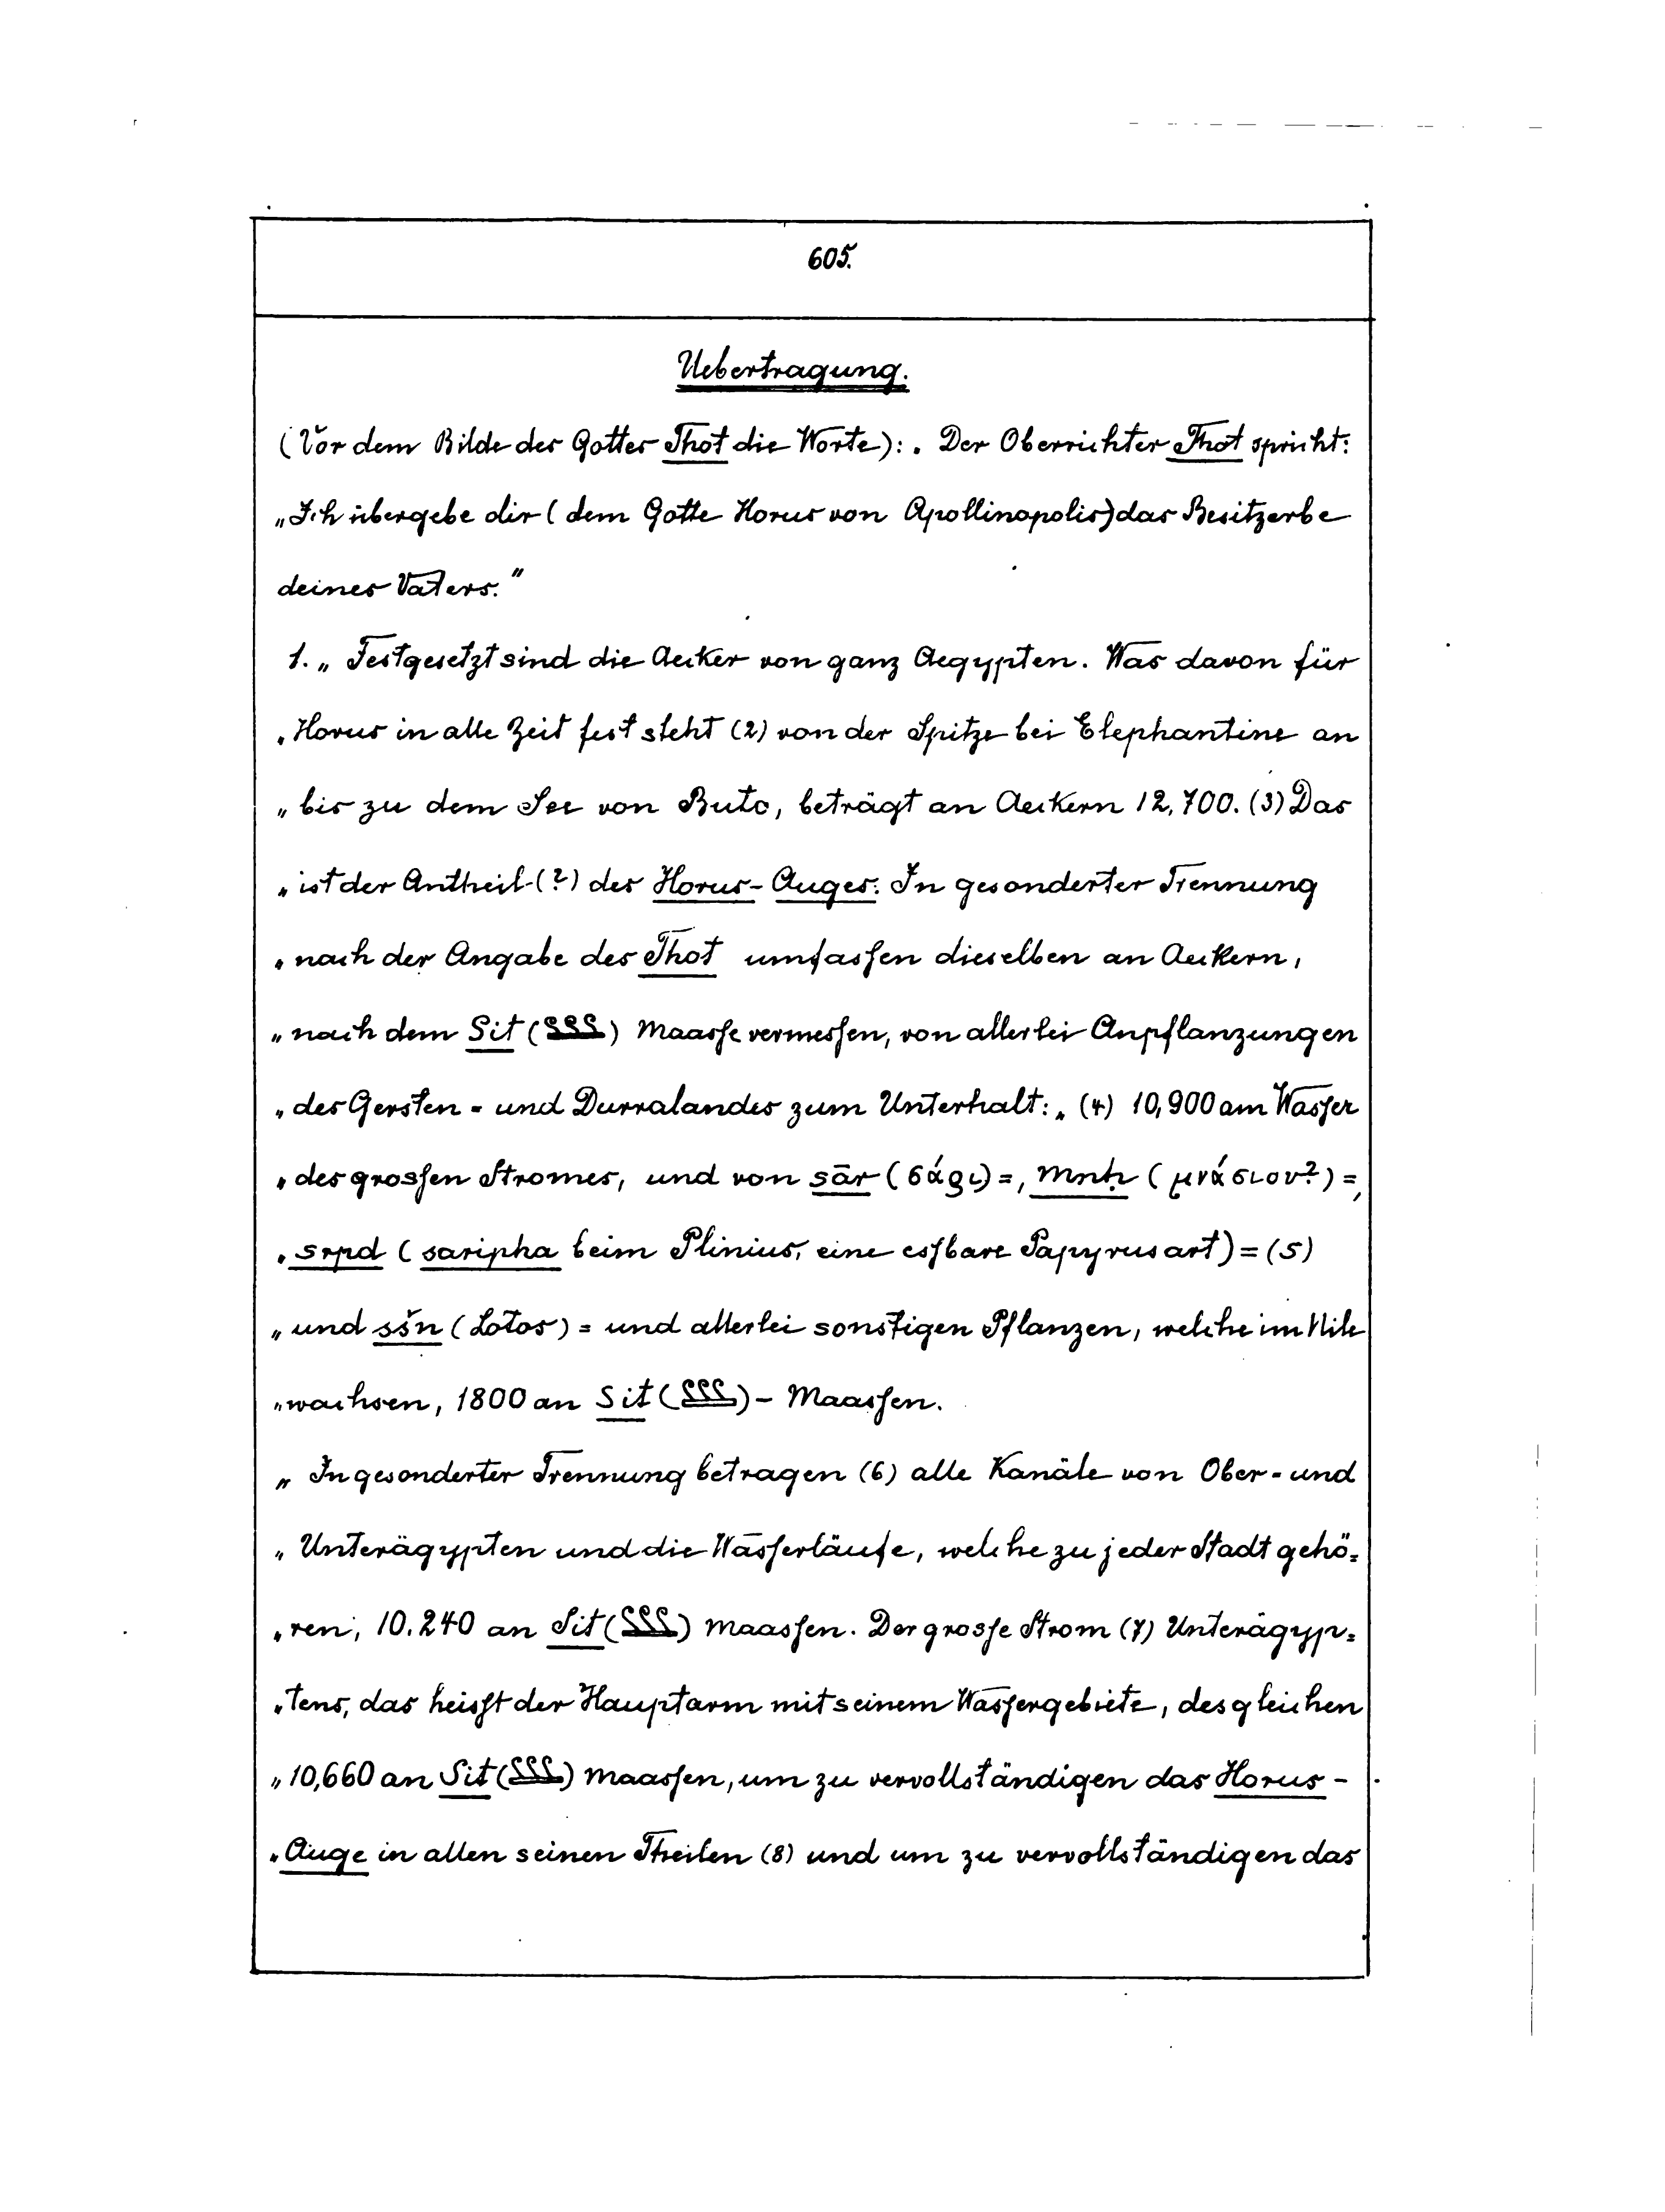 605.
Uebertragung.
(Vor dem Bilde des Gottes Thot die Worte):. Der Oberrichter Thot spricht:
„Ich übergebe dir (dem Gotte Horus von Apollinopolis) das Besitzerbe
deines Vaters."
1. „Festgesetzt sind die Aecker von ganz Aegypten. Was davon für
„Horus in alle Zeit fest steht (2) von der Spitze bei Elephantine an
„bis zu dem See von Buto, beträgt an Aeckern 12,700. (3) Das
„ist der Antheil (?) des Horus-Auges. In gesonderter Trennung
„nach der Angabe des Thot umfassen dieselben an Aeckern,
„nach dem Sit () Maasse vermessen, von allerlei Anpflanzungen
„des Gersten- und Durralandes zum Unterhalt: „(4) 10,900 am Wasser
„des grossen Stromes, und von sār (σάρι) =, mnḥ (μνάσιον?) =,
„srpd (saripha beim Plinius, eine essbare Papyrusart) = (5)
„und sšn (Lotos) = und allerlei sonstigen Pflanzen, welche im Nile
„wachsen, 1800 an Sit () - Maassen.
„In gesonderter Trennung betragen (6) alle Kanäle von Ober- und
„Unterägypten und die Wasserläufe, welche zu jeder Stadt gehö=
„ren, 10.240 an Sit () Maassen. Der grosse Strom (7) Unterägyp=
„tens, das heisst der Hauptarm mit seinem Wassergebiete, desgleichen
„10,660 an Sit () Maassen, um zu vervollständigen das Horus-
„Auge in allen seinen Theilen (8) und um zu vervollständigen das